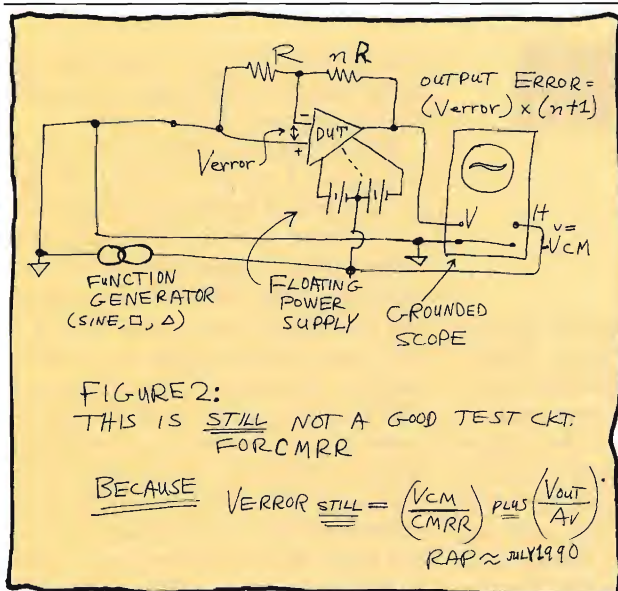 R
nR
OUTPUT ERROR =
(Verror) × (n+1)
-
DUT
+
Verror
V
H
V=
-VCM
FUNCTION
GENERATOR
(SINE, □, △)
FLOATING
POWER
SUPPLY
GROUNDED
SCOPE
FIGURE 2:
THIS IS STILL NOT A GOOD TEST CKT.
FOR CMRR
BECAUSE VERROR STILL = (VCM/CMRR) PLUS (VOUT/AV).
RAP ≈ JULY 1990